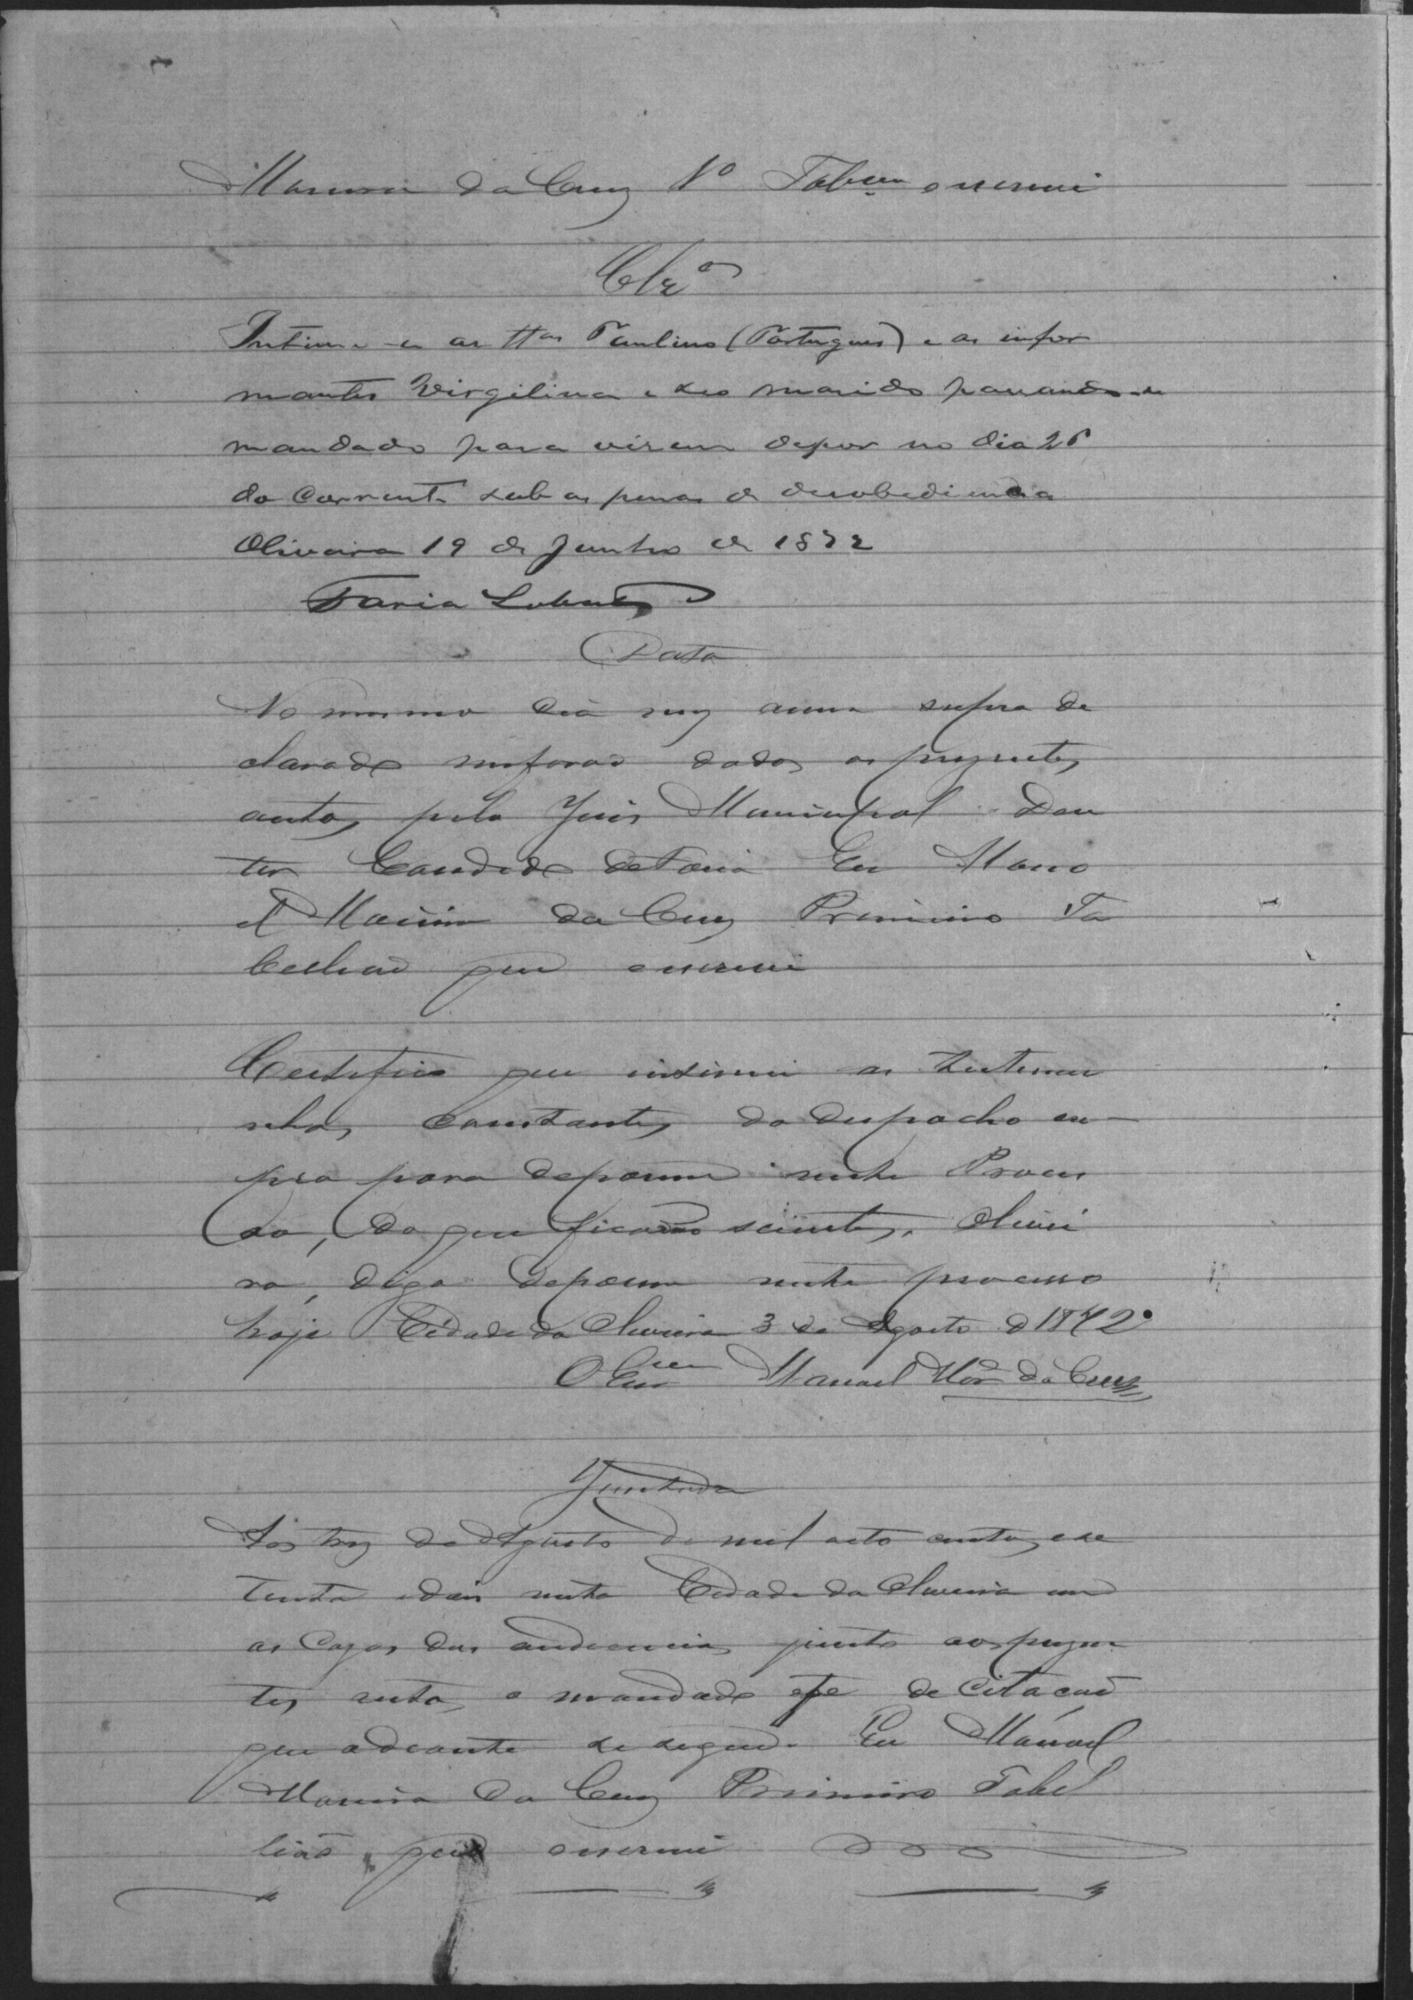 Moreira da Cruz 1º Tabam escrevi
Clzº
Intime-se as ttas Paulino (Portugues) e as infor
mantes Virgilina e seo marido passando-se
mandado para virem depor no dia 26
do corrente sub as penas de desobediencia
Oliveira 19 de Junho de 1872
Faria Lobato
Data
No mesmo dia mez anno supra de
clarado me forao dados os prezentes
autos pelo Juis Municipal Dou
tor Candido de Faria Eu Mano
el Moreira da Cruz Primeiro Ta
belliao que escrevi
Certifico que intimei as testemu
nhas constantes do despacho su
pra para deporem neste Proces
so, do que ficarao scientes. Olivei
ra, digo deporem neste processo
hoje Cidade da Oliveira 3 de Agosto d 1872.
O Escram Manoel Mora da Cruz
Juntada
Aos trez de Agosto de mil oito centos e se
tenta e dois nesta Cidade da Oliveira em
as Cazas das audiencias junto aos prezen
tes autos o mandado e fe de Citacaõ
que adeante se segue. Eu Manoel
Moreira da Cruz Primeiro Tabel
liaõ que escrevi